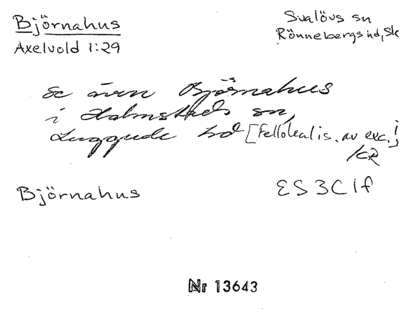 Björnahus
Axelvold 1:29
Svalövs sn
Rönnebergs hd, Sk
Se även Björnahus
i Halmstads sn,
Luggude hd [Fellokalis. av exc.!]
/CR
Björnahus
ES3C1f
Nr 13643